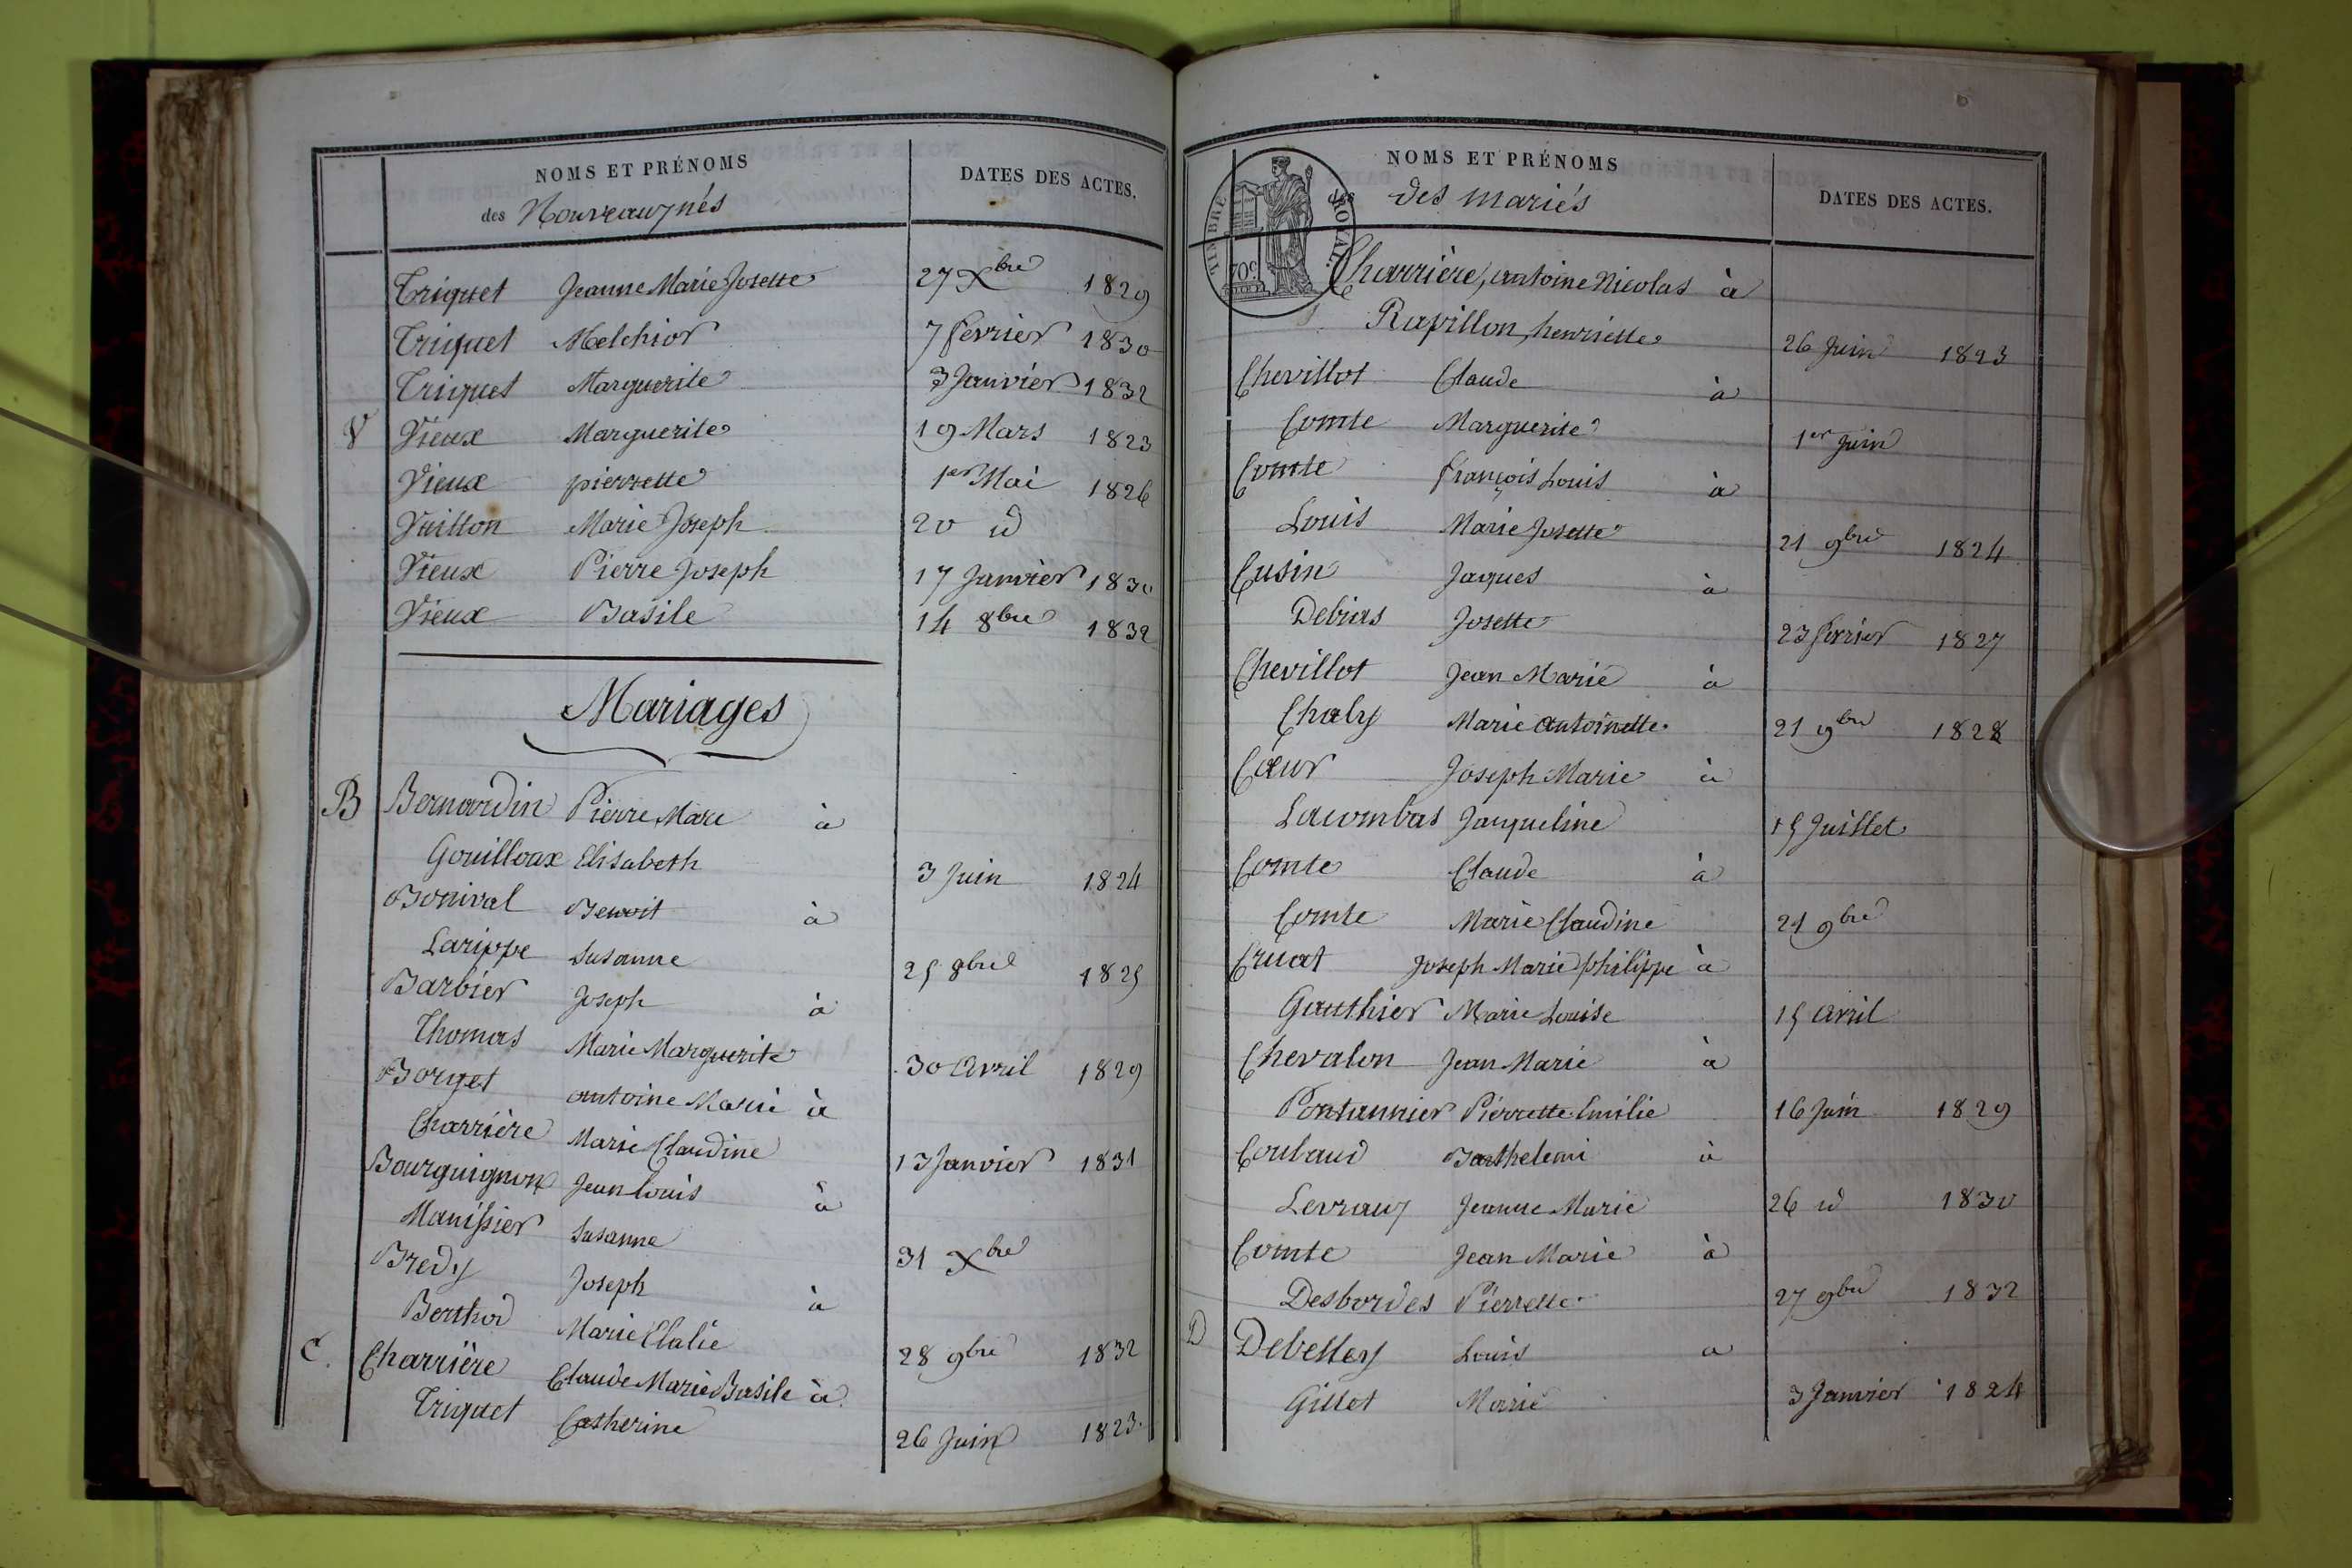 NOMS ET PRÉNOMS
des Nouveaux nés
DATES DES ACTES.
Triquet Jeanne Marie Josette 27 Xbre 1829
Triquet Melchior 7 fevrier 1830
Triquet Marguerite 3 Janvier 1832
V Vieux Marguerite 19 Mars 1823
Vieux pierrette 1er Mai 1826
Vuitton Marie Joseph 20 id
Vieux Pierre Joseph 17 Janvier 1830
Vieux Basile 14 8bre 1832
Mariages
B Bernardin Pierre Marc à
Gouilloux Elisabeth 3 Juin 1824
Bonival Benoit à
Larippe Susanne 25 8bre 1825
Barbier Joseph à
Thomas Marie Marguerite 30 Avril 1829
Borget antoine Marie à
Charrière Marie Claudine 13 Janvier 1831
Bourguignon Jean Louis à
Manissier Susanne 31 Xbre
Bredy Joseph à
Berthod Marie Elalie 28 9bre 1832
C. Charrière Claude Marie Basile à
Triquet Catherine 26 Juin 1823.
NOMS ET PRÉNOMS
des mariés
DATES DES ACTES.
TIMBRE ROYAL
70c
Charrière, antoine Nicolas à
Rapillon, henriette 26 Juin 1823
Chevillot Claude à
Comte Marguerite 1er Juin
Comte françois Louis à
Louis Marie Josette 21 9bre 1824
Cusin Jaques à
Debias Josette 23 fevrier 1827
Chevillot Jean Marie à
Chaly Marie antoinette 21 9bre 1828
Cœur Joseph Marie à
Lacombas Jacqueline 15 Juillet
Comte Claude à
Comte Marie Claudine 21 9bre
Cruat Joseph Marie philippe à
Gauthier Marie Louise 15 avril
Chevalon Jean Marie à
Pontannier Pierrette Emilie 16 Juin 1829
Coulaud Barthelemi à
Levraux Jeanne Marie 26 id 1830
Comte Jean Marie à
Desbordes Pierrette 27 9bre 1832
D Debelley Louis a
Gillet Marie 3 Janvier 1824